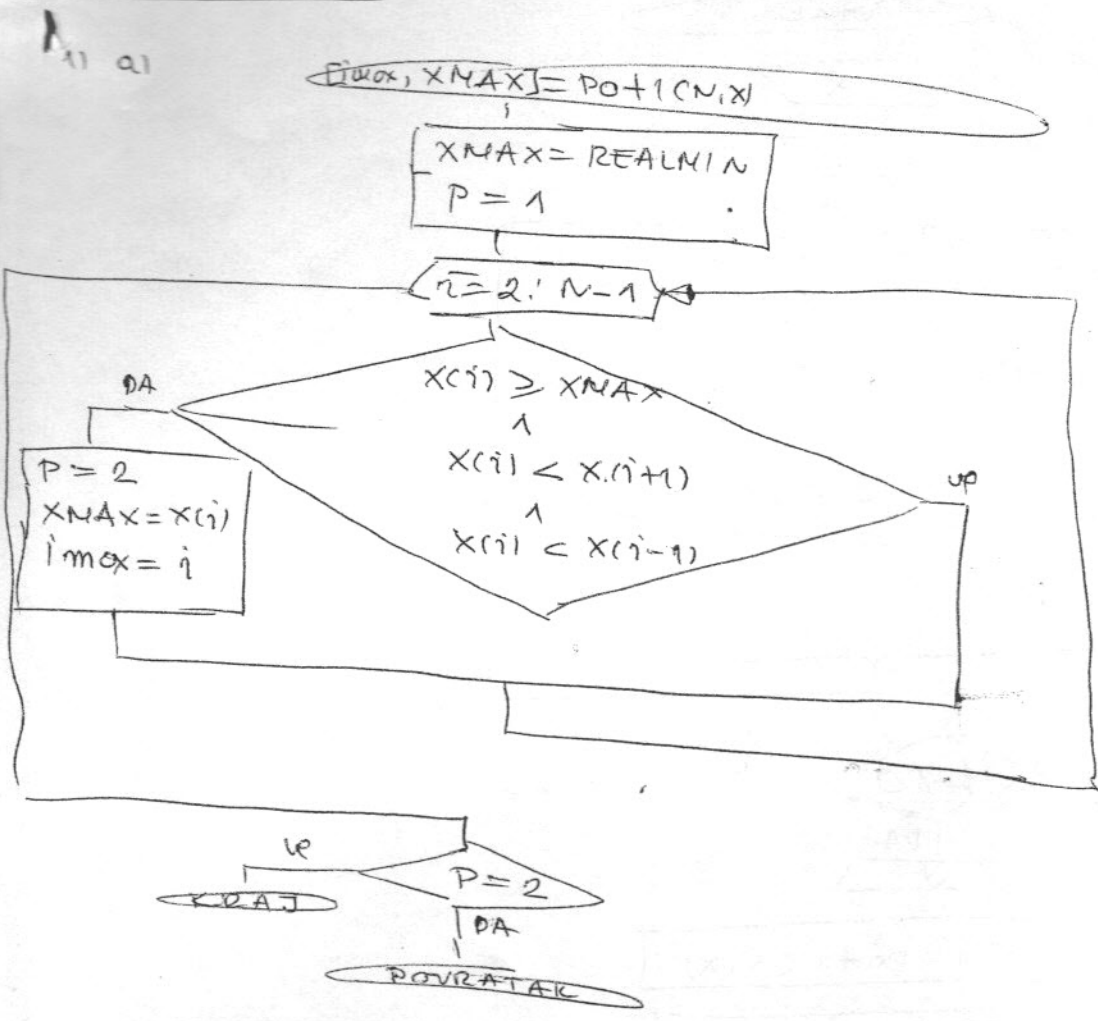 1) a)
[imax, XMAX] = Pot1(N,X)
XMAX = REALMIN
P = 1
i = 2 : N-1
DA
X(i) ≥ XMAX
∧
X(i) < X(i+1)
∧
X(i) < X(i-1)
ne
P = 2
XMAX = X(i)
imax = i
ne
P = 2
KRAJ
DA
POVRATAK